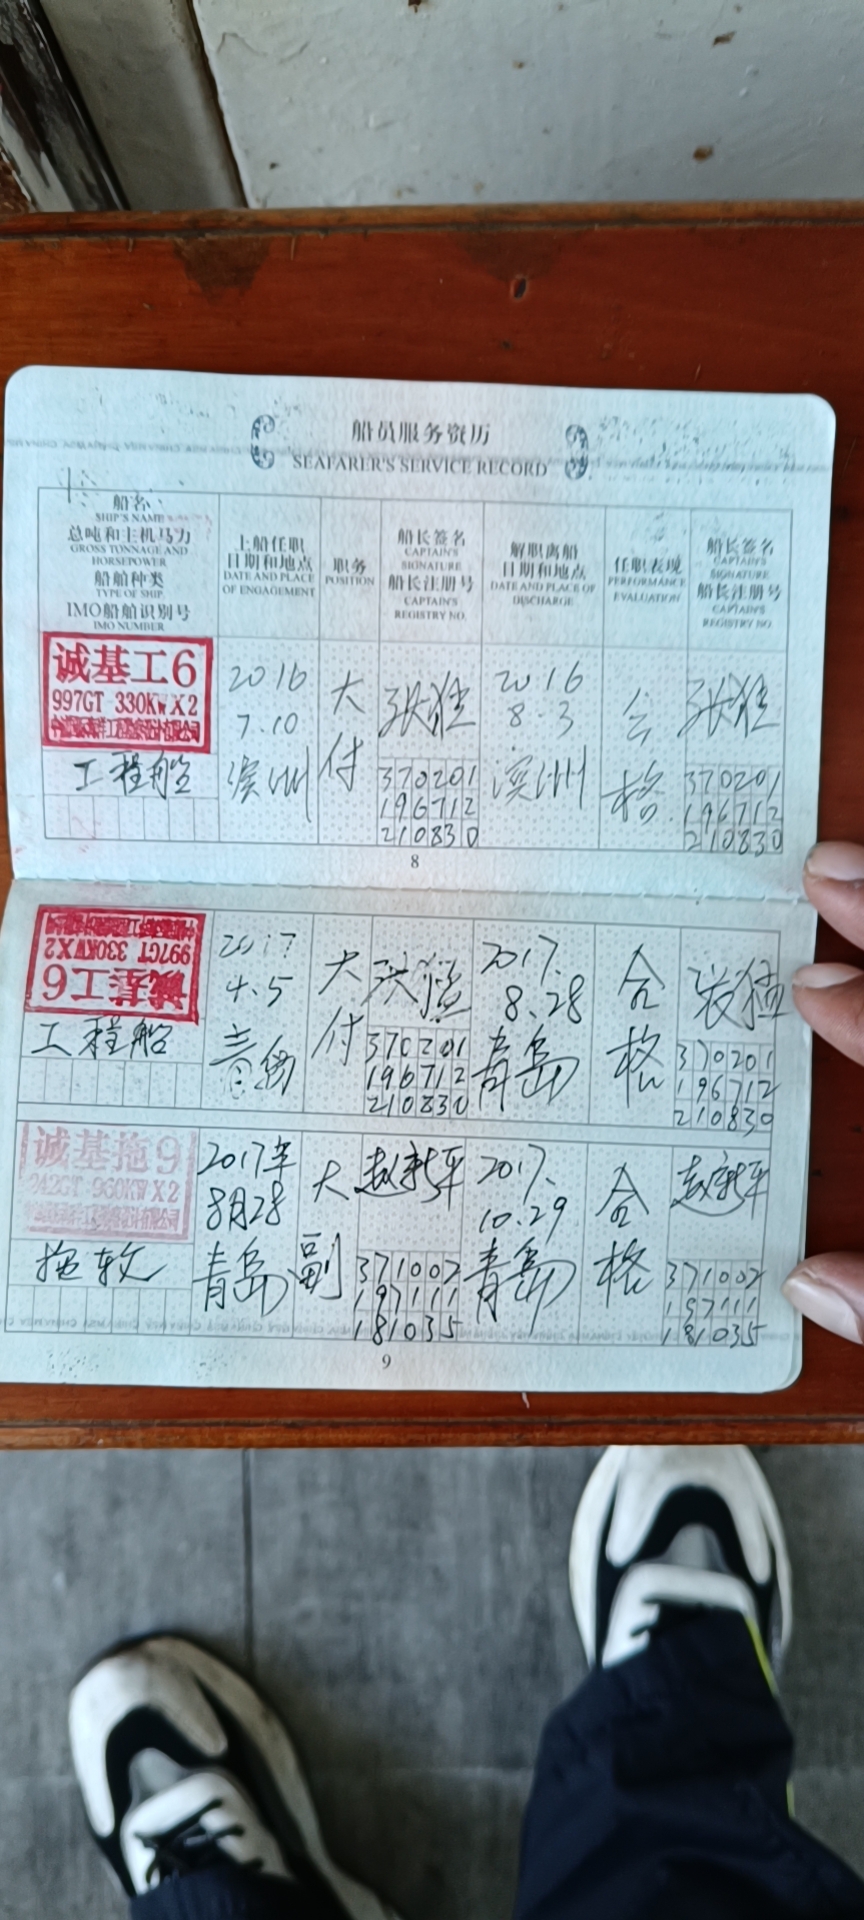 船员服务资历
SEAFARER'S SERVICE RECORD
船名
SHIP'S NAME
总吨和主机马力
GROSS TONNAGE AND
HORSEPOWER
船舶种类
TYPE OF SHIP
IMO船舶识别号
IMO NUMBER
上船任职
日期和地点
DATE AND PLACE
OF ENGAGEMENT
职务
POSITION
船长签名
CAPTAIN'S
SIGNATURE
船长注册号
CAPTAIN'S
REGISTRY NO.
解职离船
日期和地点
DATE AND PLACE OF
DISCHARGE
任职表现
PERFORMANCE
EVALUATION
船长签名
CAPTAIN'S
SIGNATURE
船长注册号
CAPTAIN'S
REGISTRY NO.
诚基工6
997GT 330KW X2
工程船
2016
7.10
滨州
大
付
370201
196712
210830
2016
8.3
滨州
合
格
370201
196712
210830
8
诚基工6
997GT 330KW X2
工程船
2017
4.5
青岛
大
付
370201
196712
210830
2017.
8.28
青岛
合
格
370201
196712
210830
诚基拖9
942GT 960KW X2
拖轮
2017年
8月28
青岛
大
副
赵新平
371002
197111
181035
2017.
10.29
青岛
合
格
赵新平
371002
197111
181035
9